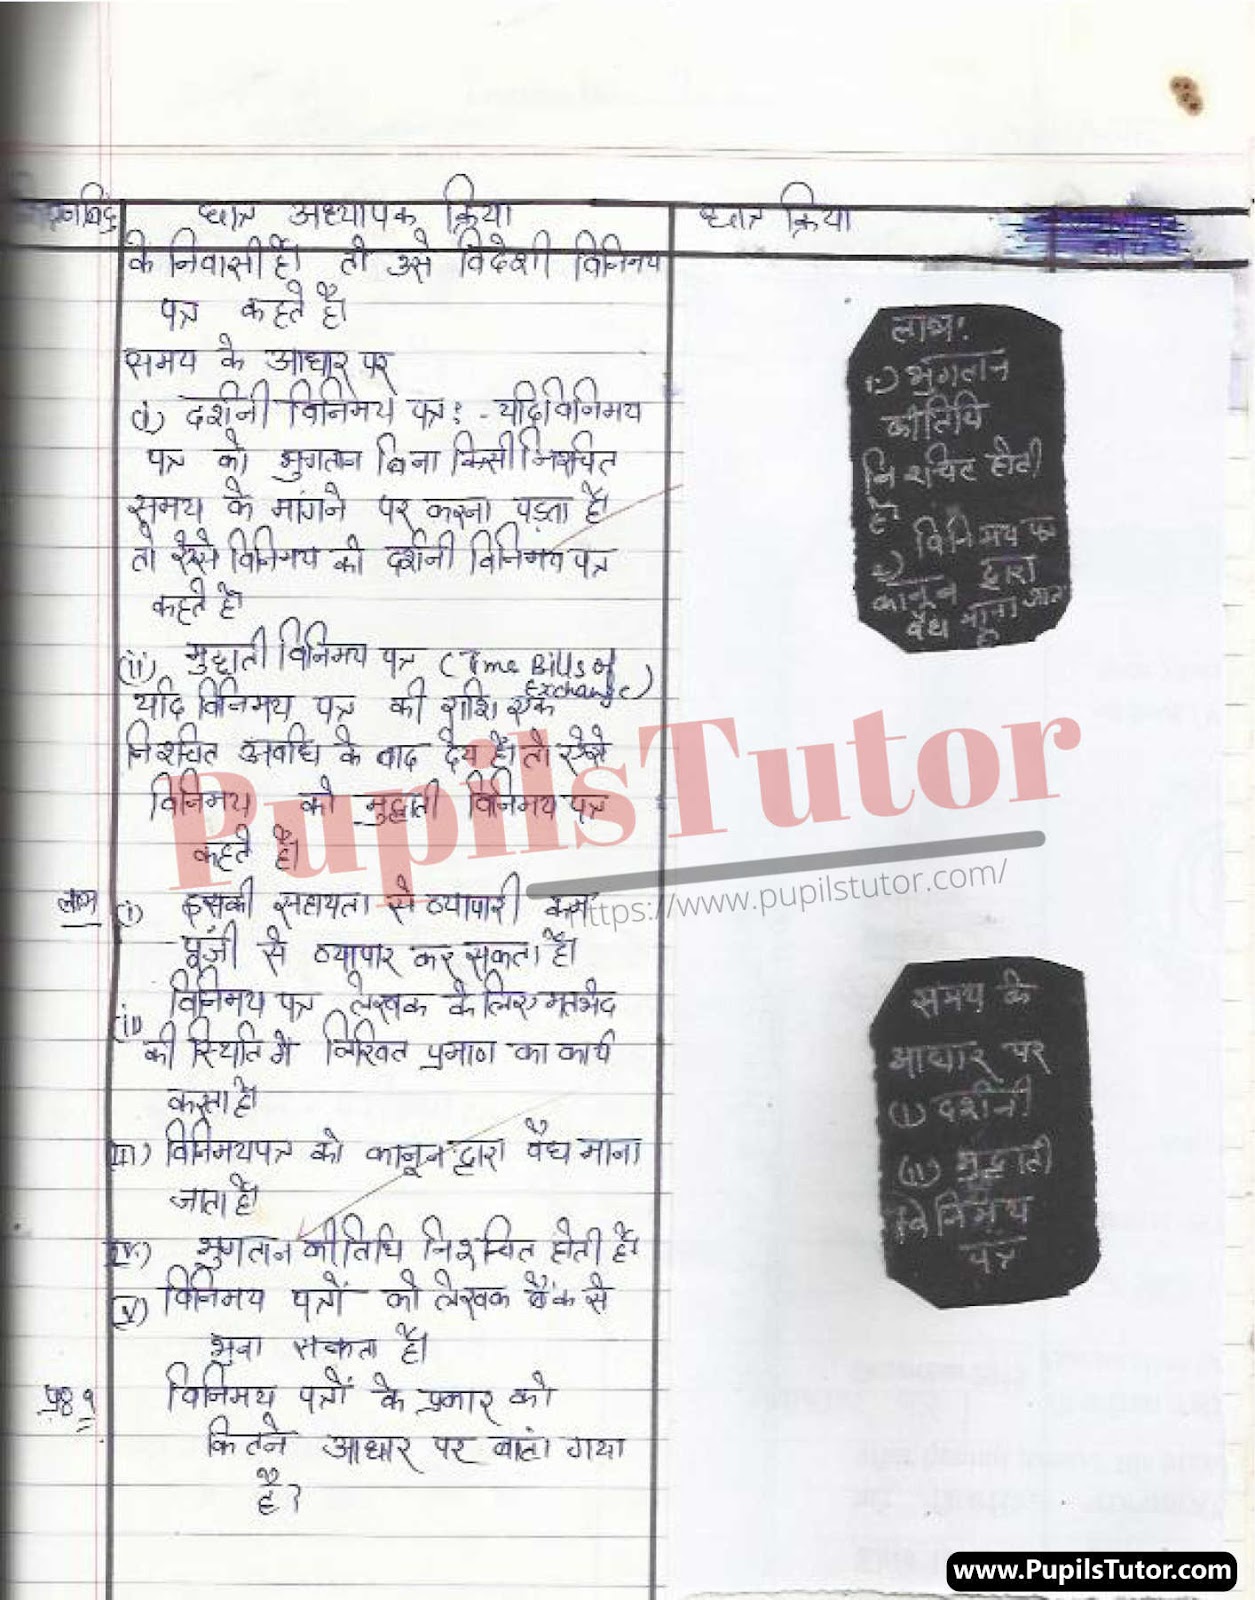 छात्र अध्यापक क्रिया
छात्र क्रिया
कार्य
के निवासी है। तो उसे विदेशी विनिमय
पत्र कहते है।
समय के आधार पर
(i) दर्शनी विनिमय पत्र:- यदि विनिमय
पत्र को भुगतान बिना किसी निश्चित
समय के मांगने पर करना पड़ता है।
तो ऐसे विनिमय को दर्शनी विनिमय पत्र
कहते है।
(ii) मुद्दाती विनिमय पत्र (Time Bills of
Exchange)
यदि विनिमय पत्र की राशि एक
निश्चित अवधि के बाद देय है। तो ऐसे
विनिमय को मुद्दाती विनिमय पत्र
कहते है।
लाभ
(i) इसकी सहायता से व्यापारी कम
पूंजी से व्यापार कर सकता है।
(ii) विनिमय पत्र लेखक के लिए मतभेद
की स्थिति में लिखित प्रमाण का कार्य
करता है।
(iii) विनिमयपत्र को कानून द्वारा वैध माना
जाता है।
(iv) भुगतान की तिथि निश्चित होती है।
(v) विनिमय पत्रों को लेखक बैंक से
भुना सकता है।
विनिमय पत्रों के प्रकार को
कितने आधार पर बांता गया
है?
लाभ:
1) भुगतान
की तिथि
निश्चित होती
है।
2) विनिमय पत्र
कानून द्वारा
वैध माना जाता
है
समय के
आधार पर
(i) दर्शनी
(ii) मुद्दाती
विनिमय
पत्र
PupilsTutor
https://www.pupilstutor.com/
www.PupilsTutor.com